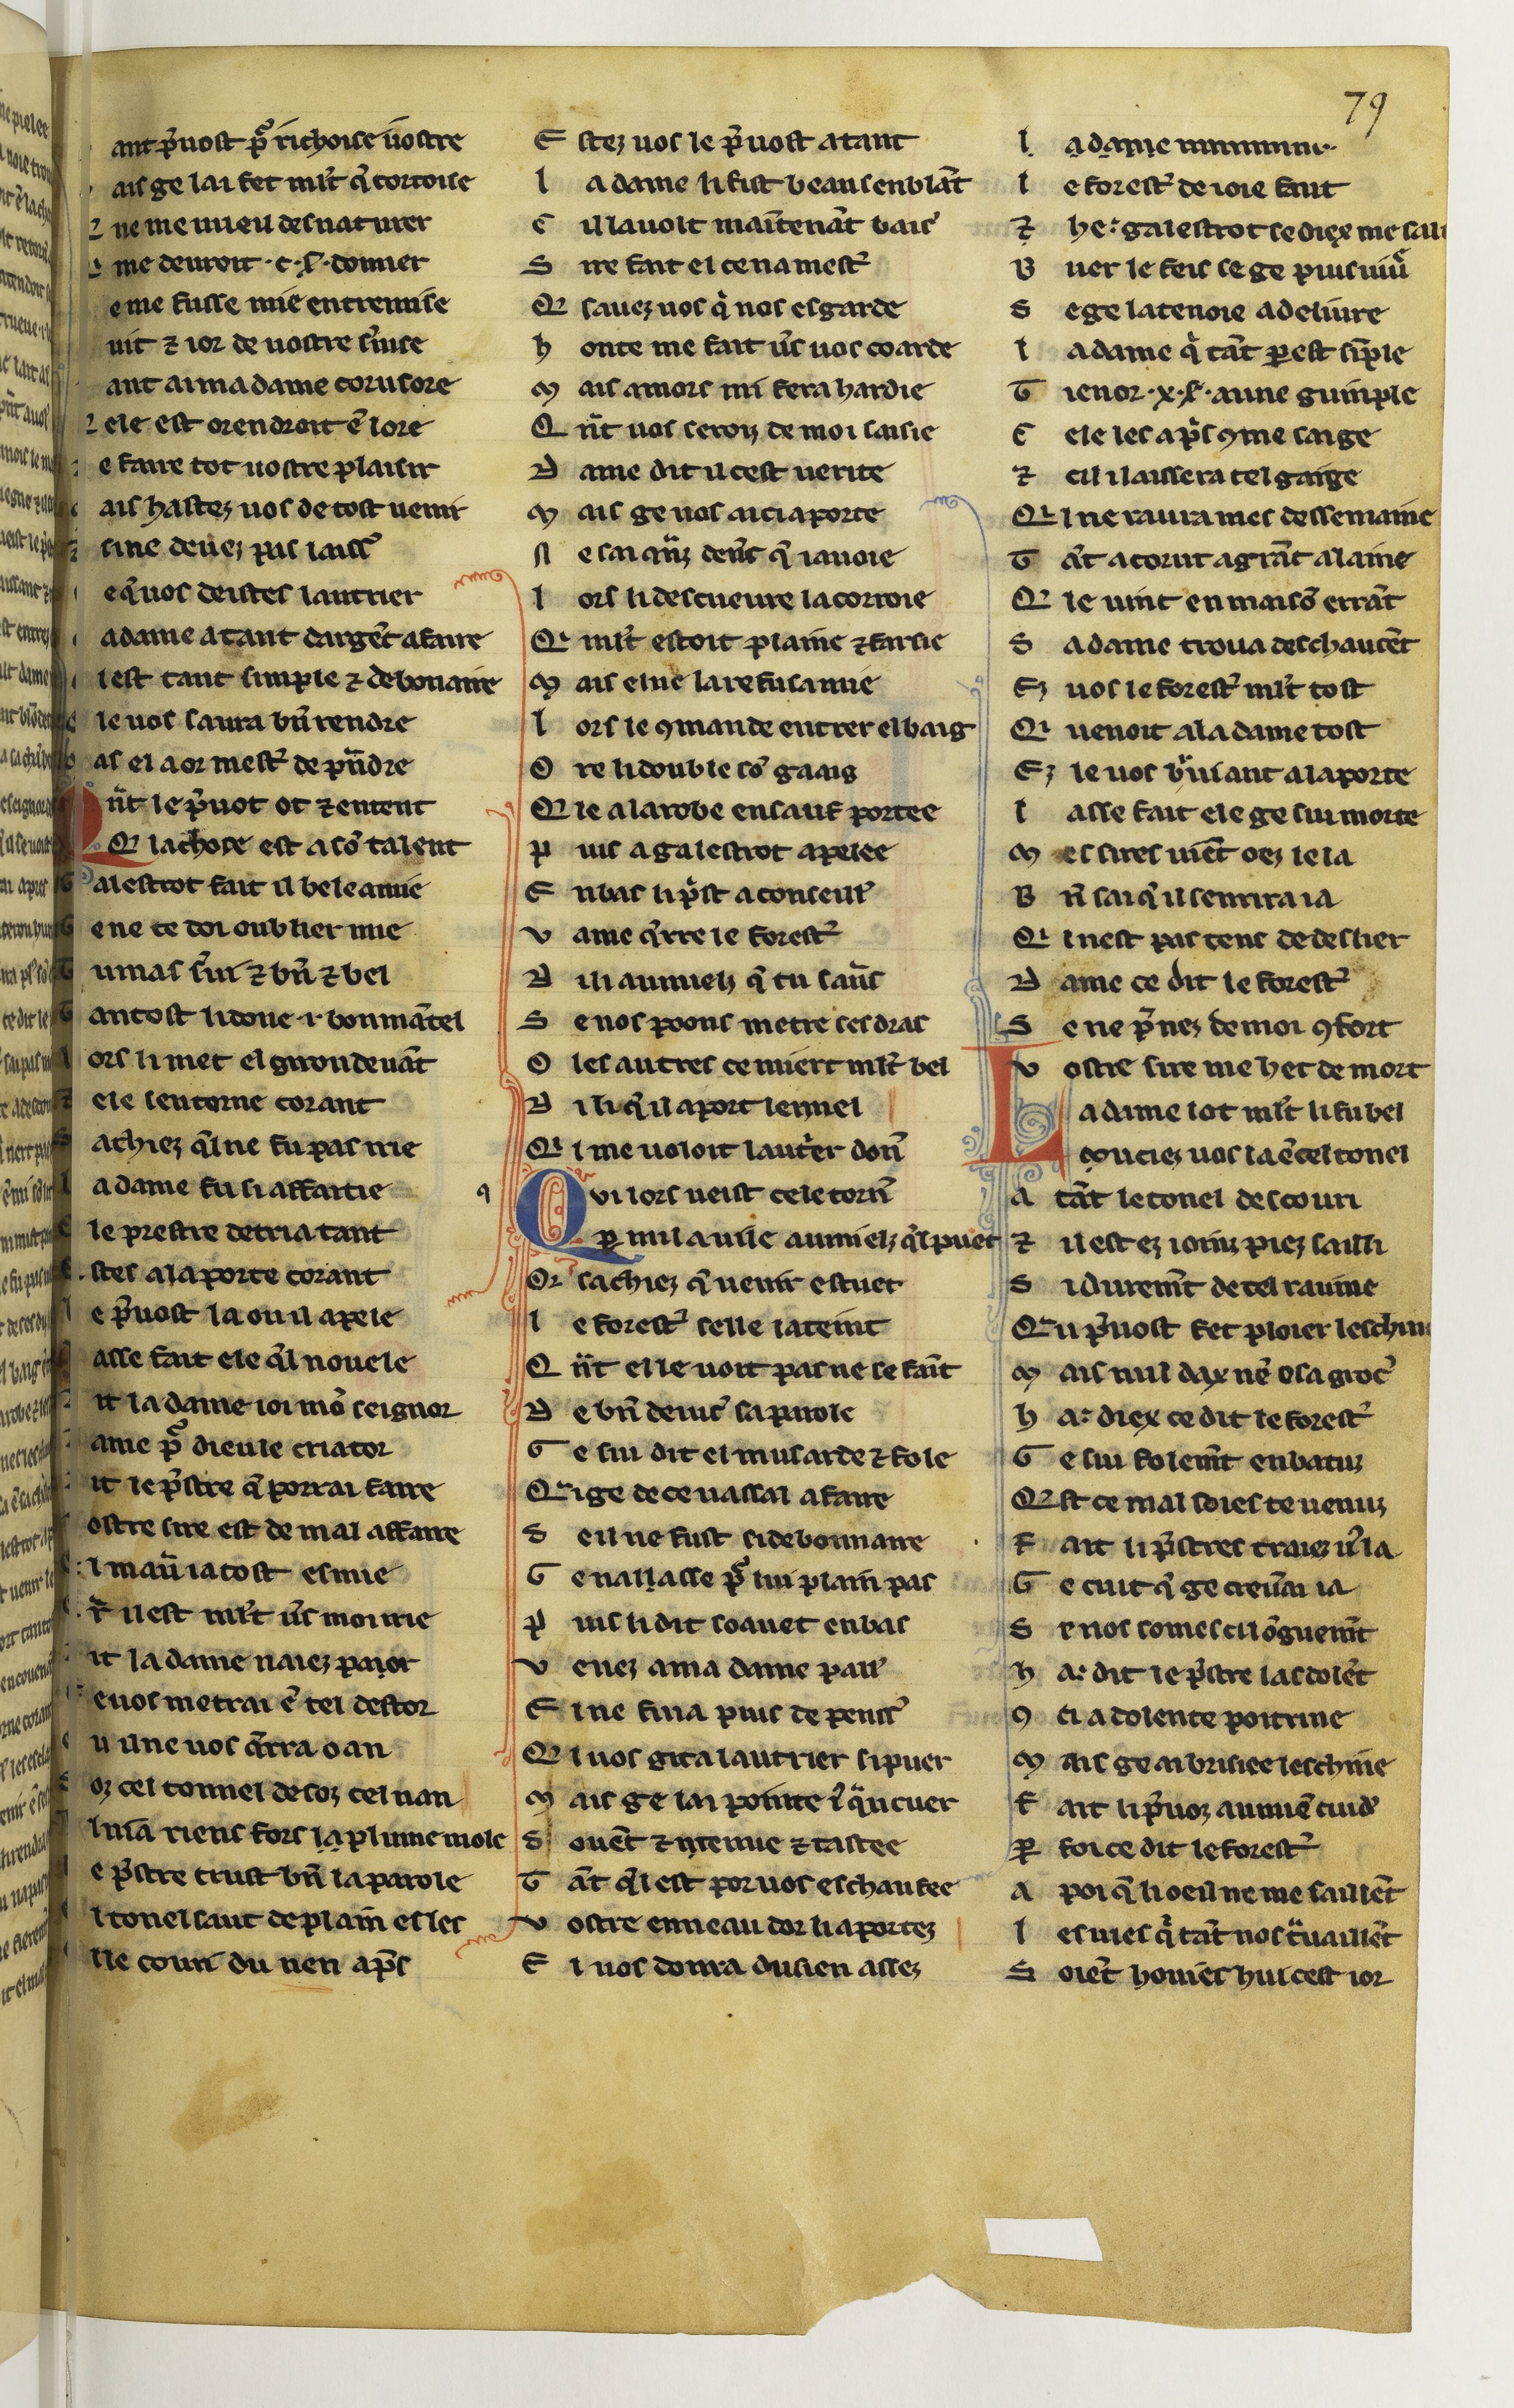 79
ant p̃uost p̃ richoise ũostre
ais ge lai fet ml't q̃ cortoise
ne me uueil desnaturer
me deuroit ·c·ſ· donner
e me fusse mie entremise
uit ⁊ ior de uostre s̃uise
ant ai ma dame corusore
ele est orendroit ẽ lore
e faire tot uostre plaisir
ais hastez uos de tost uenir
si ne deuez pas laiss̃
e q̃ uos deistes lautrier
a dame a tant dargẽt a faire
l est tant simple ⁊ debonaire
le uos saura bñ rendre
as el a or mest̃ de pñdre
ñt le p̃uot ot ⁊ entent
Q lachose est a sõ talent
alestrot fait il bele amie
e ne te doi oublier mie
u mas s̃ui ⁊ bñ ⁊ bel
antost li done ·i· bon mãtel
ors li met el giron deuãt
ele sen torne corant
achiez q̃l ne fu pas irie
a dame fu si affaitie
le prestre detria tant
stes a la porte corant
e p̃uost la ou il apele
asse fait ele q̃l nouele
it la dame ioi mõ seignor
ame p̃ dieu le criator
it le p̃stre q̃ porrai faire
ostre sire est de mal affaire
l maũ ia tost esmie
r̃ il est ml't ũs moi irie
it la dame naiez paior
e uos metrai ẽ tel destor
u il ne uos q̃rra oan
oz cel tonnel desoz cel uan
l niã riens fors la plume mole
e p̃stre crust bñ la parole
l tonel saut de plain esles
lle couri du uen ap̃s
E stez uos le p̃uost atant
l a dame li fist beau senblãt
C il lauoit maĩtenãt bais̃
S ire fait el ce na mest̃
Q sauez uos q̃ nos esgarde
h onte me fait ũs uos coarde
M ais amors mi fera hardie
Q ñt uos seroiz de moi saisie
D ame dit il cest uerite
M ais ge uos ai ci aporte
N e sai q̃nz deñs q̃ iauoie
l ors li descueure la corroie
Q ml't estoit plaine ⁊ farsie
M ais el ne la refusa mie
l ors le ꝯmande entrer el baig
O re li double sõ gaaig
Q le a la robe en sauf portee
P uis a galestrot apelee
E n bas li p̃st a conseill̃
V a me q̃rre le forest̃
D i li au mielz q̃ tu saũs
S e nos poons metre ses dras
O les autres ce niert ml't bel
D i li q̃l aport lennel
Q i me uoloit laut̃er doñ
Q vi lors ueist cele torñ
ꝑ mi la uile au mielz q̃l puet
Or sachiez q̃ uenir estuet
l e forest̃ selle lateint
Q ñt el le uoit pas ne se faĩt
D e bñ deuis̃ sa parole
G e sui dit el musarde ⁊ fole
Q i ge de ce uassal a faire
S e il ne fust si debonnaire
G e nallasse p̃ lui plain pas
P uis li dit soauet en bas
V enez a ma dame pall̃
E l ne fina puis de pens̃
Q l uos gita lautrier si puer
M ais ge lai pointe ĩ q̃u cuer
S ouẽt ⁊ menue ⁊ tastee
T ãt q̃l est por uos eschaufee
V ostre enneau dor li aportez
E l uos donra du sien assez
l a dame
l e forest̃ de ioie saut
⁊ he: galestrot se diex me saut
B uer le feis se ge puis uiũ
S e ge la tenoie a deliure
l a dame q̃ tãt ꝑ est sĩple
T ienor ·x·ſ· aune guimple
C ele les a p̃s ꝯme saige
⁊ cil i laissera tel gaige
Q l ne raura mes desseniaine
T ãt a corut a grãt alaine
Q le uint en maisõ errãt
S a dame troua deschaucẽt
Ez uos le forest̃ ml't tost
Q uenoit a la dame tost
Ez le uos b̃uiant a la porte
l asse fait ele ge sui morte
M es sires uiẽt oez le la
B ñ sai q̃ il senrira ia
Q l nest pas tens de deslier
D ame ce dit le forest̃
S e ne p̃nez de moi ꝯfort
V ostre sire me het de mort
L a dame lot ml't li fu bel
Muciez uos la ẽ cel tonel
A tãt le tonel descouri
⁊ il est ez ioinz piez sailli
S i durem̃t de tel rauine
Qu p̃uost fet ploier leschine
M ais nul dax nẽ osa groc̃
h a: diex ce dit le forest̃
G e sui folem̃t enbatuz
Qst ce mal soies te uenuz
F ait li p̃stres traiez ũ la
G e cuit q̃ ge creũai ia
S r nos somes ci lõguem̃t
h a: dit le p̃stre las dolẽt
ꝯ ci a dolente poitrine
M ais ge ai brisiee leschine
F ait li p̃uoz au miẽ cuid̃
ꝑ foi ce dit le forest̃
A poi q̃ li oeil ne me saillẽt
l es uies q̃ tãt nos t̃uaillẽt
S oiẽt honies hui cest ior